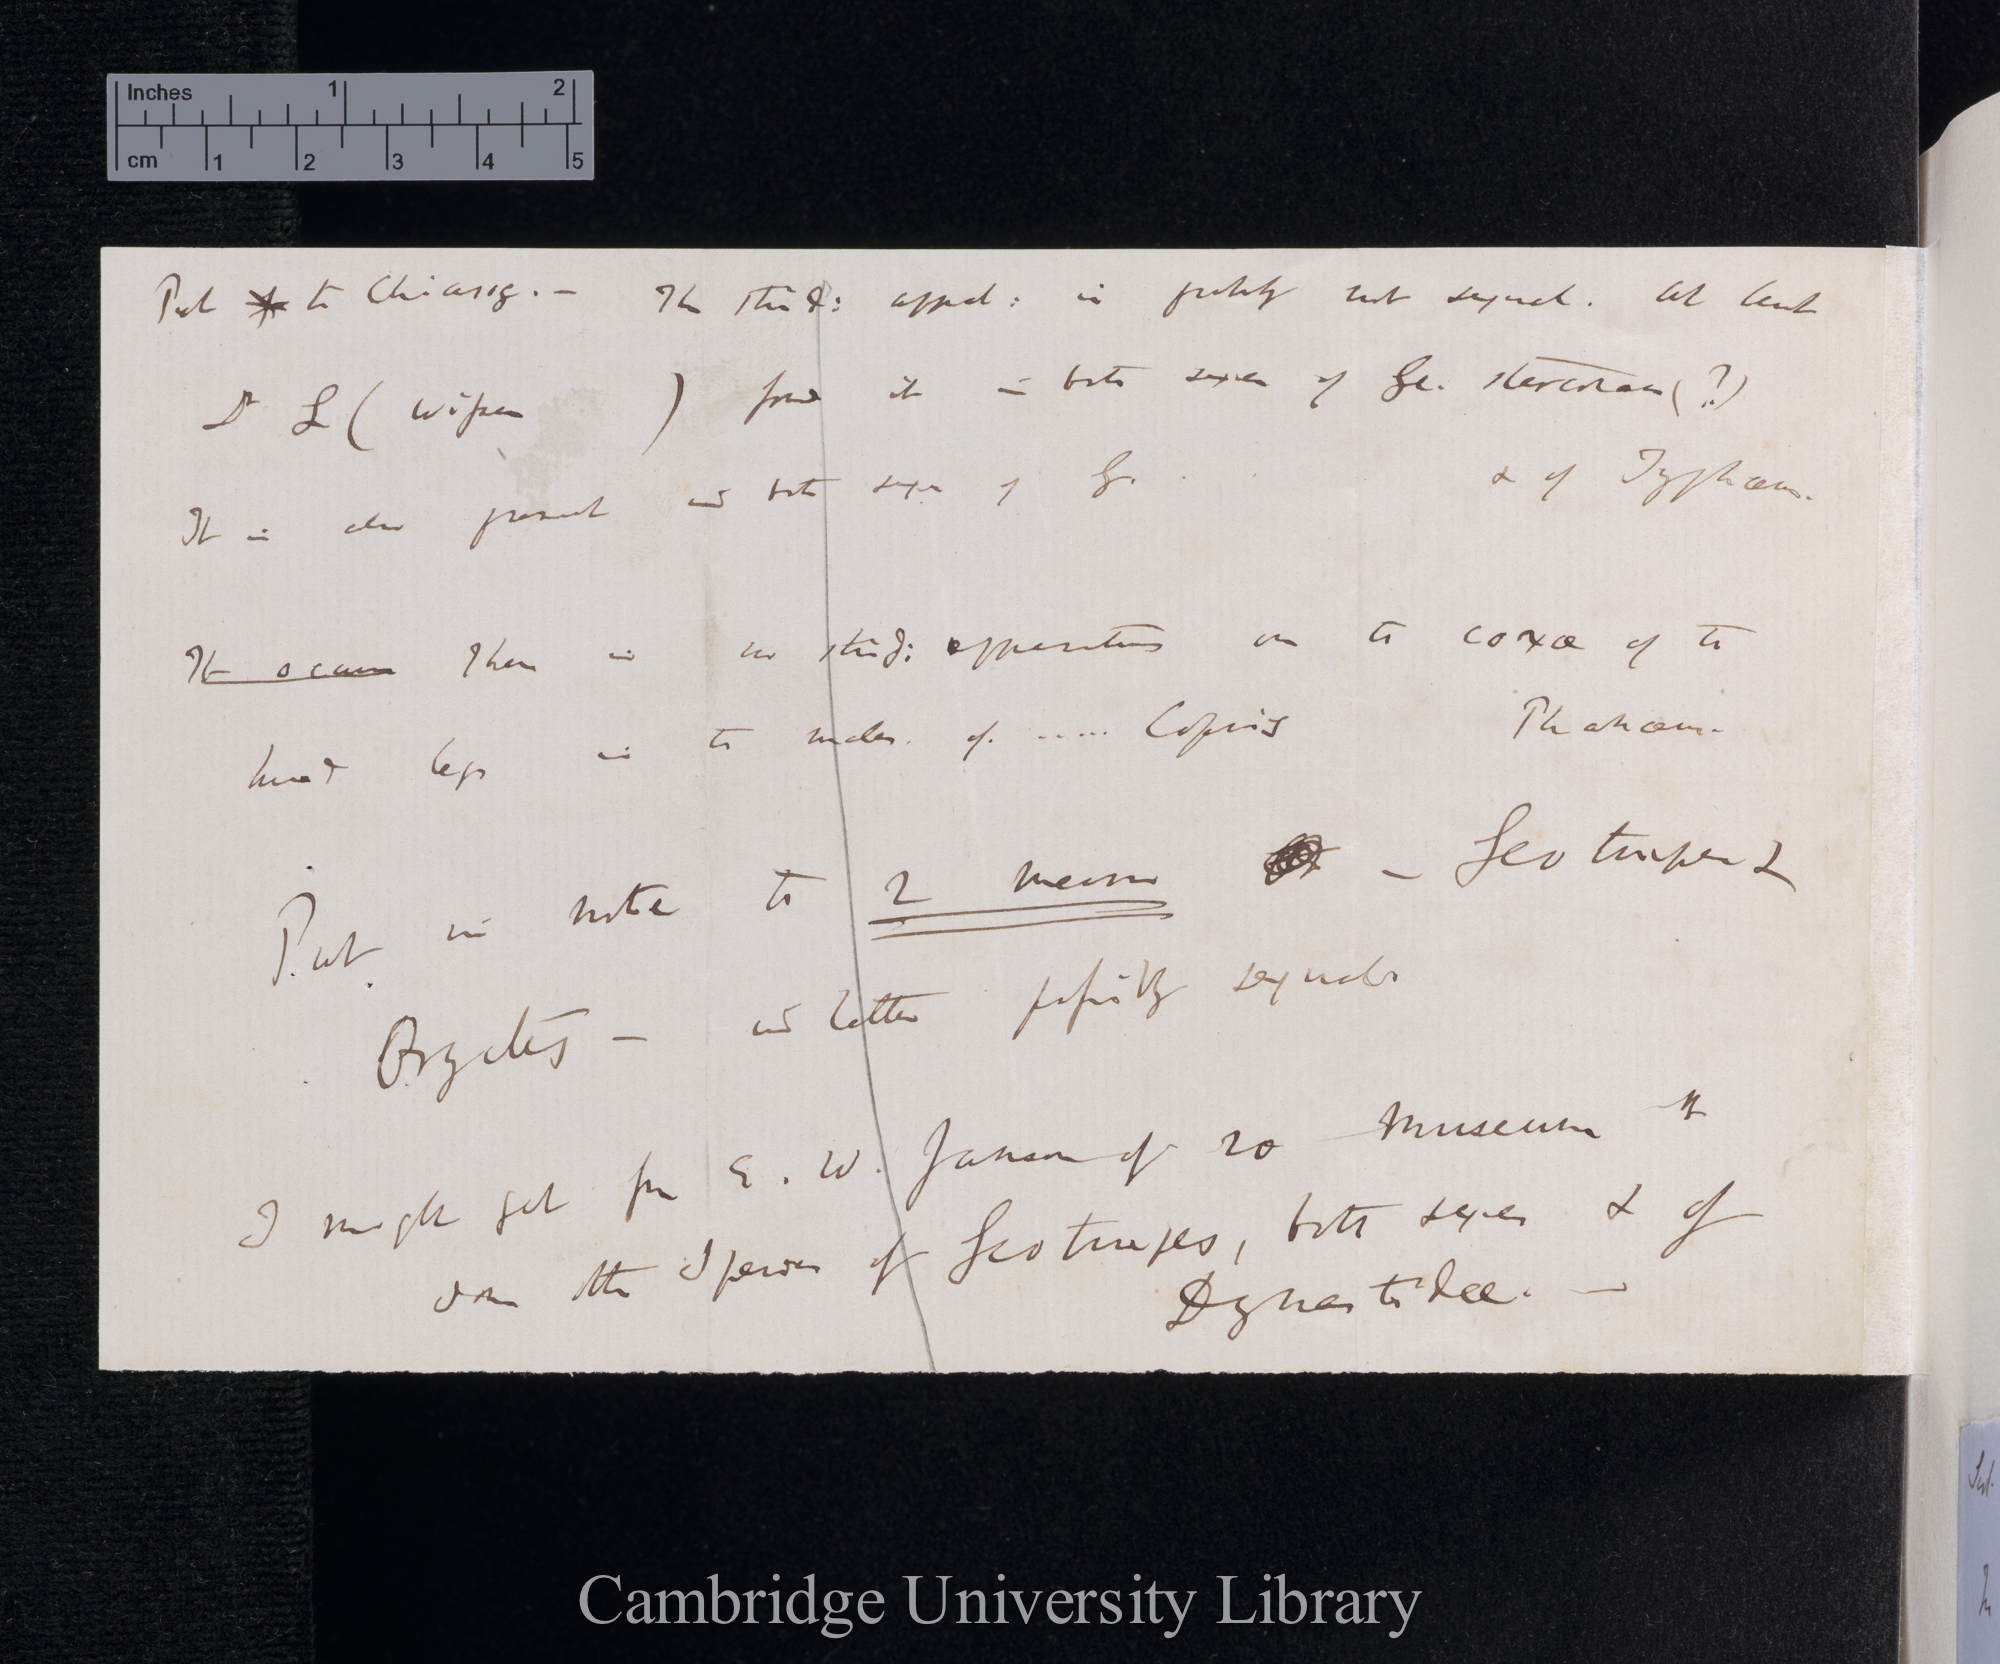 Inches 1 2
cm 1 2 3 4 5
Put to Chiasog. — The Strid: appa: is probably not sexual. At least
Dr L ( ) found it in both sexes of Ge. stercorar (?)
It is also present in both sexes of Ge. & of Typhaeus.
It occurs There is no strid: apparatus on the coxae of the
hind legs in the males. of. ..... Copris Phanaeus.
Put in note to 2 means — Geotrupes &
Oryctes — in latter possibly sexual
I might get from E. W. Janson of 20 Museum St
some other Species of Geotrupes, both sexes & of
Dynastidae. —
Cambridge University Library